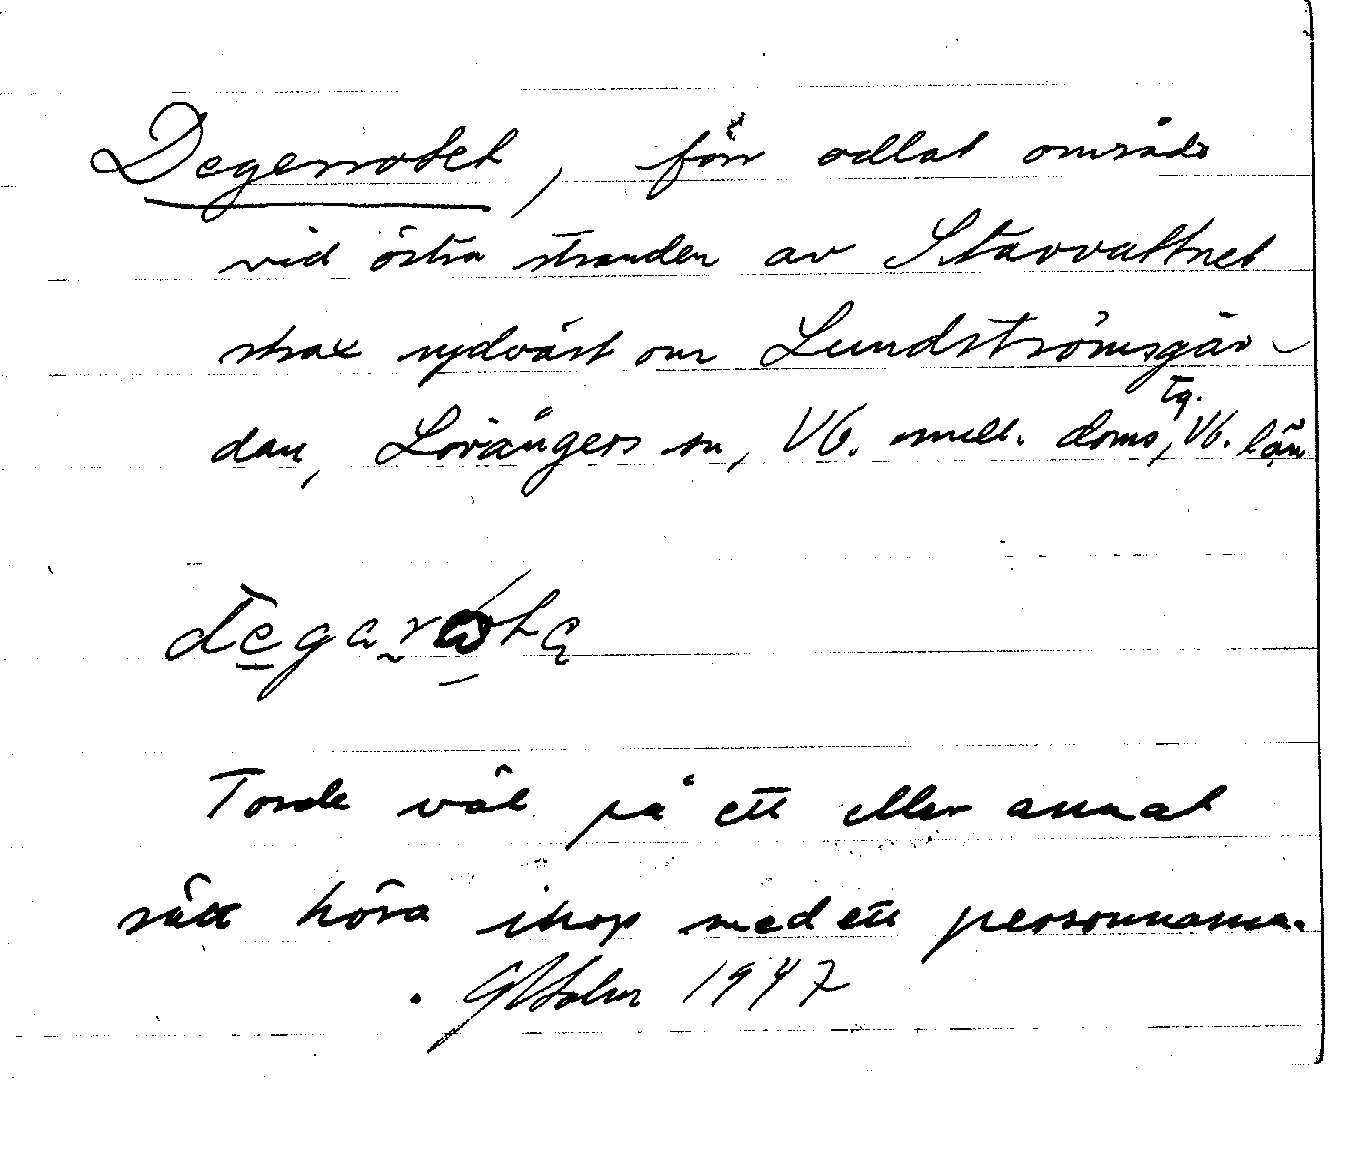 Degerrotet, förr odlat område
vid östra stranden av Stavvattnet
strax sydväst om Lundströmsgår-
dan, Lövångers sn, Vb. mell. doms, tg. Vb. län
degarota
Torde väl på ett eller annat
sätt höra ihop med ett personnamn.
1947